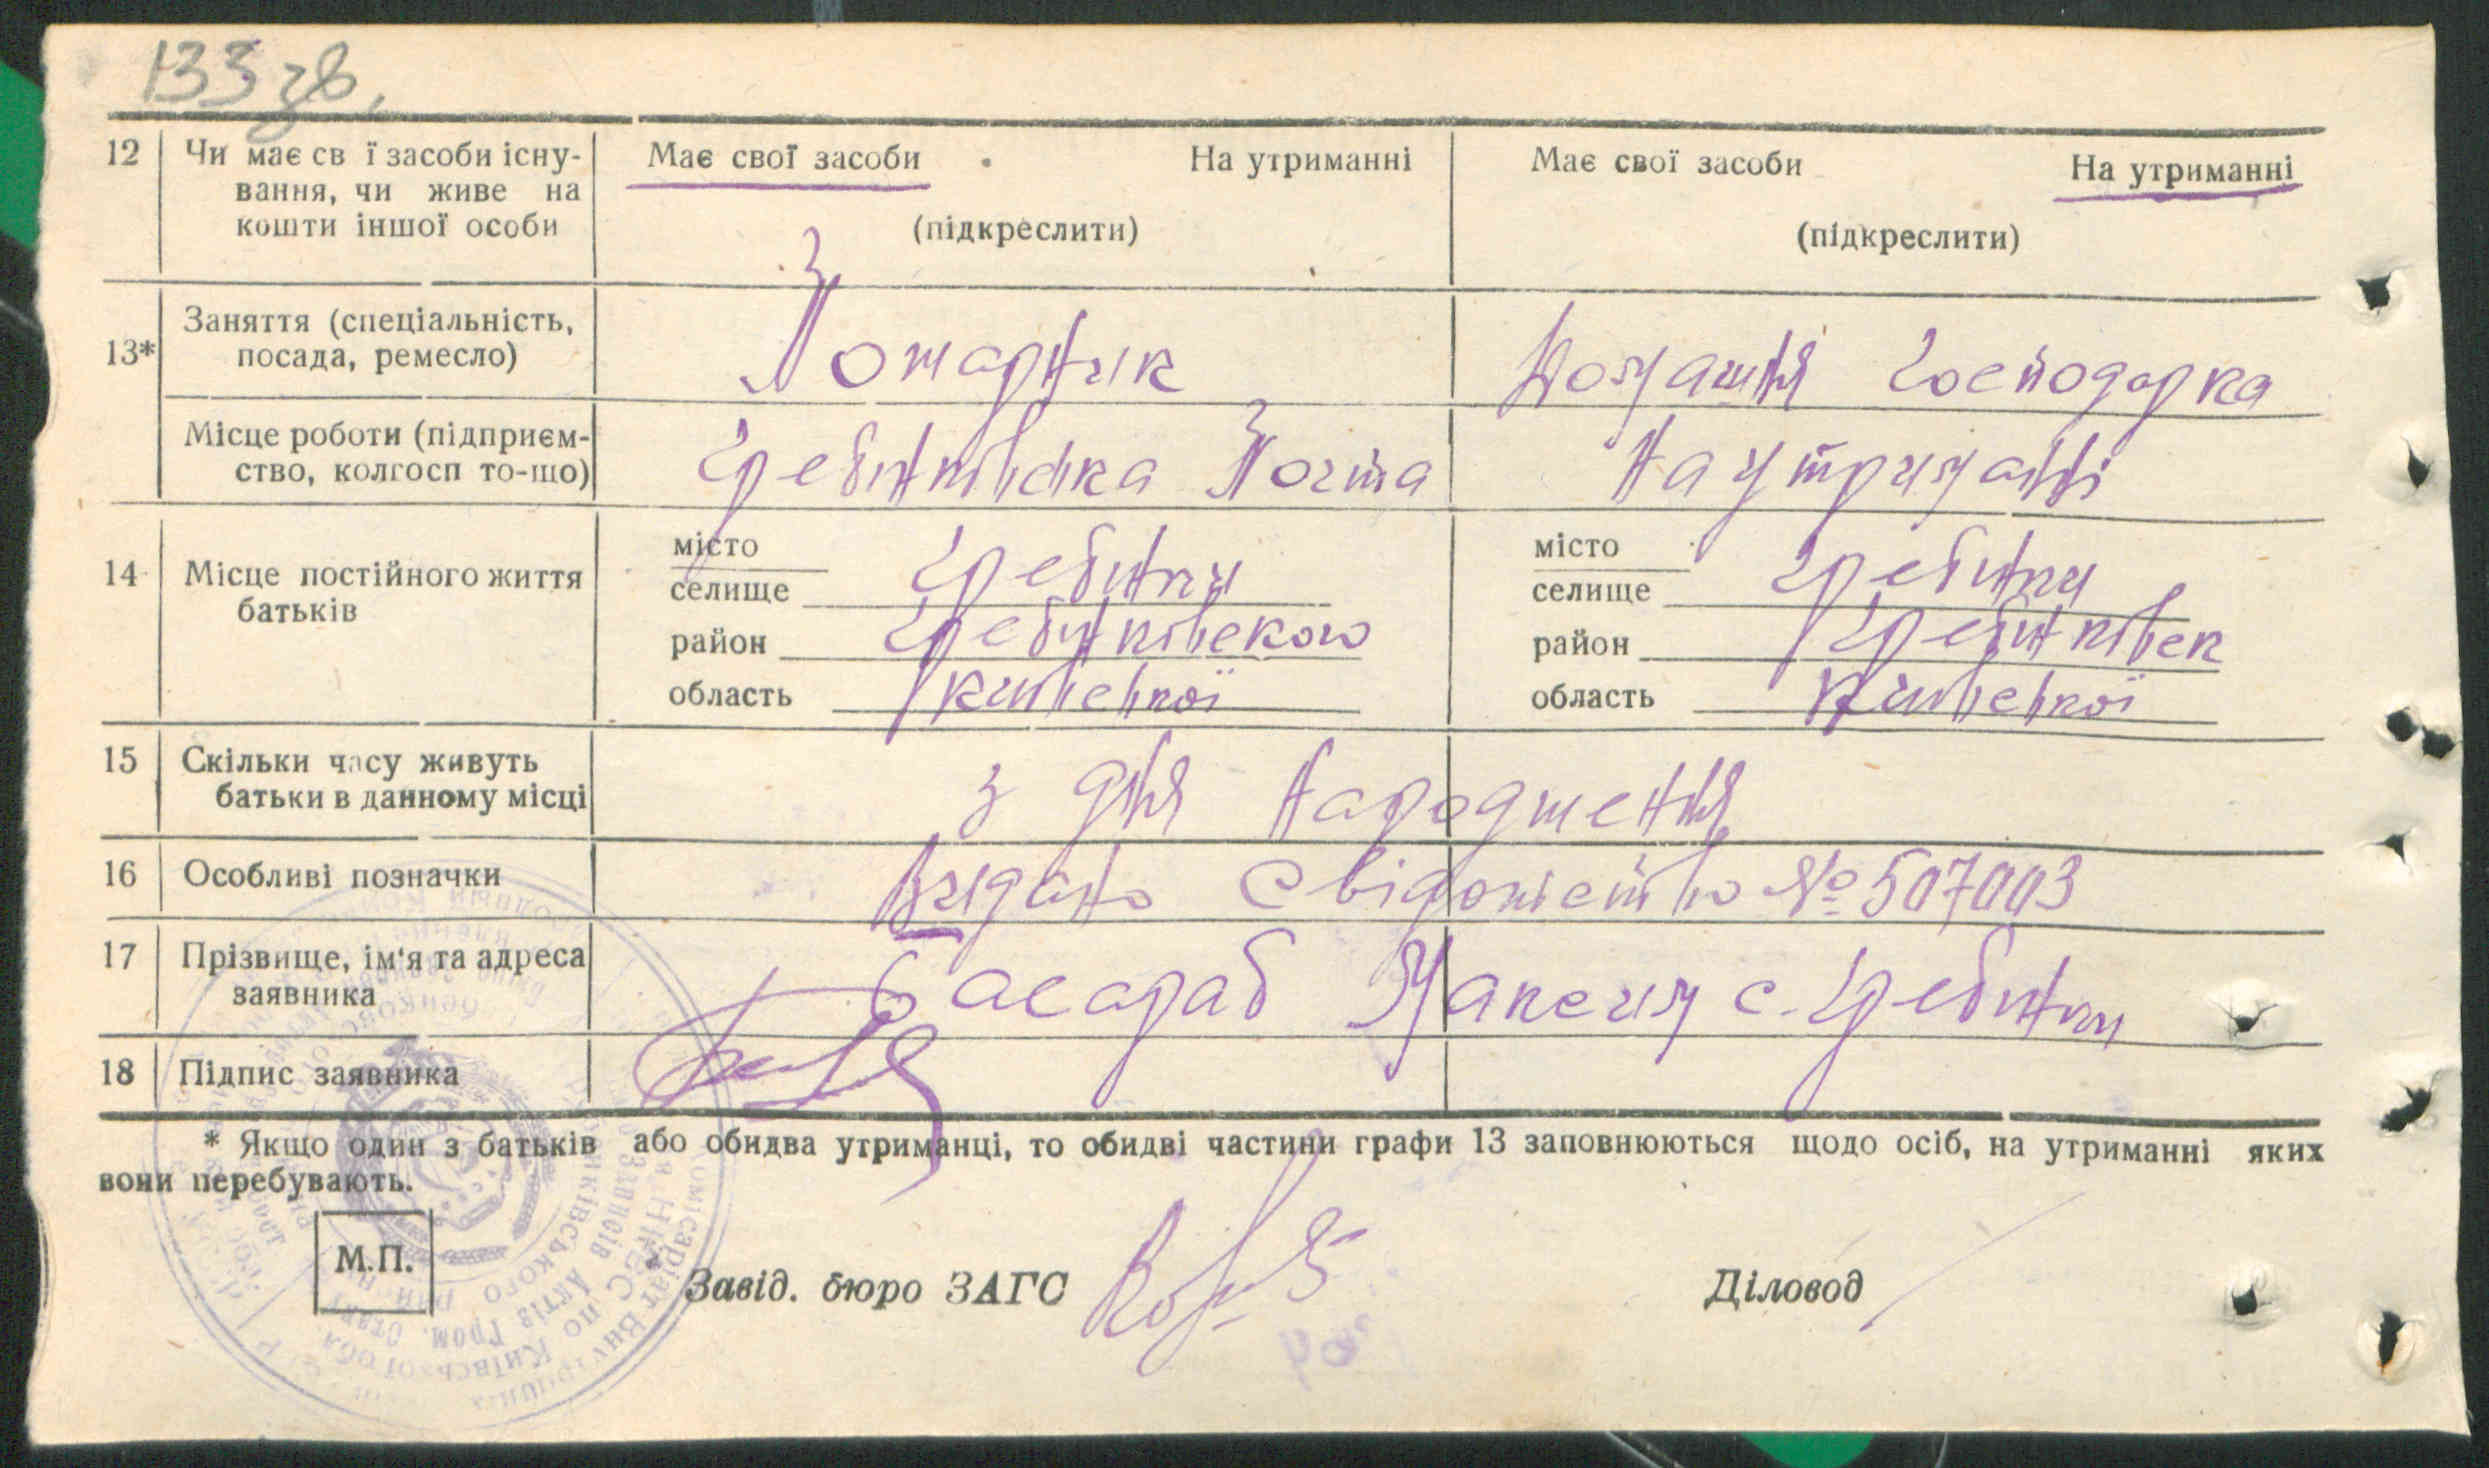 133 зв.
12 Чи має св ї засоби існу- Має свої засоби На утриманні Має свої засоби На утриманні
вання, чи живе на
кошти іншої особи (підкреслити) (підкреслити)
13* Заняття (спеціальність, Пожарник Домашня господарка
посада, ремесло)
Місце роботи (підприєм- Гребінківська Почта На утриманні
ство, колгосп то-що)
14 Місце постійного життя місто Гребінки місто Гребінки
батьків селище селище
район Гребінківского район Гребінківск
область Київської область Київської
15 Скільки часу живуть з дня народження
батьки в данному місці
16 Особливі позначки Видано свідоцтво № 507003
17 Прізвище, ім'я та адреса Басараб Максим с. Гребінки
заявника
18 Підпис заявника
* Якщо один з батьків або обидва утриманці, то обидві частини графи 13 заповнюються щодо осіб, на утриманні яких
вони перебувають.
М.П. Завід. бюро ЗАГС Діловод